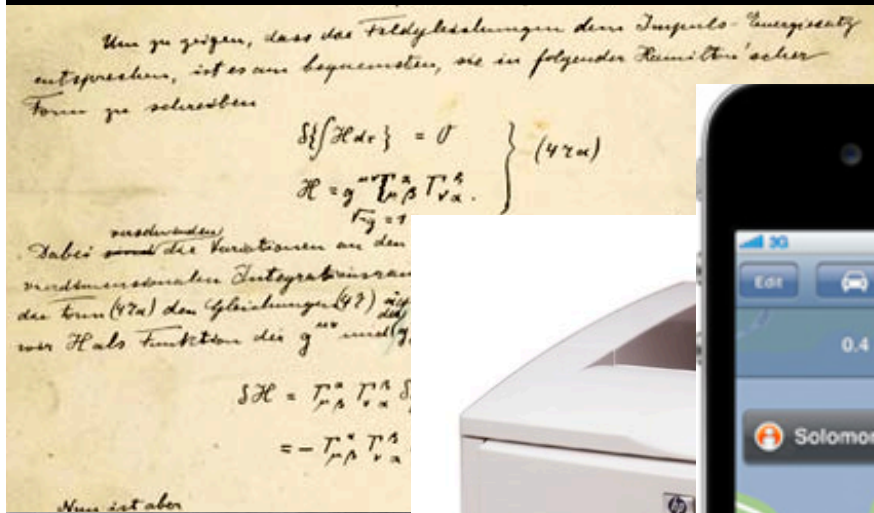 Um zu zeigen, dass die Feldgleichungen dem Impuls-Energiesatz
entsprechen, ist es am bequemsten, sie in folgender Hamilton'scher
Form zu schreiben
δ{∫ℋdτ} = 0
ℋ = g^{μν} Γ^α_{μβ} Γ^β_{να}.
(47a)
√-g = 1
verschwinden
Dabei die Variationen an den
vierdimensionalen Integrationsraum
die Form (47a) den Gleichungen (47)
wir H als Funktion der g^{μν} und
δℋ = Γ^α_{μβ} Γ^β_{να} δ
= - Γ^α_{μβ} Γ^β_{να}
Nun ist aber
hp
3G
Edit
0.4
Solomon